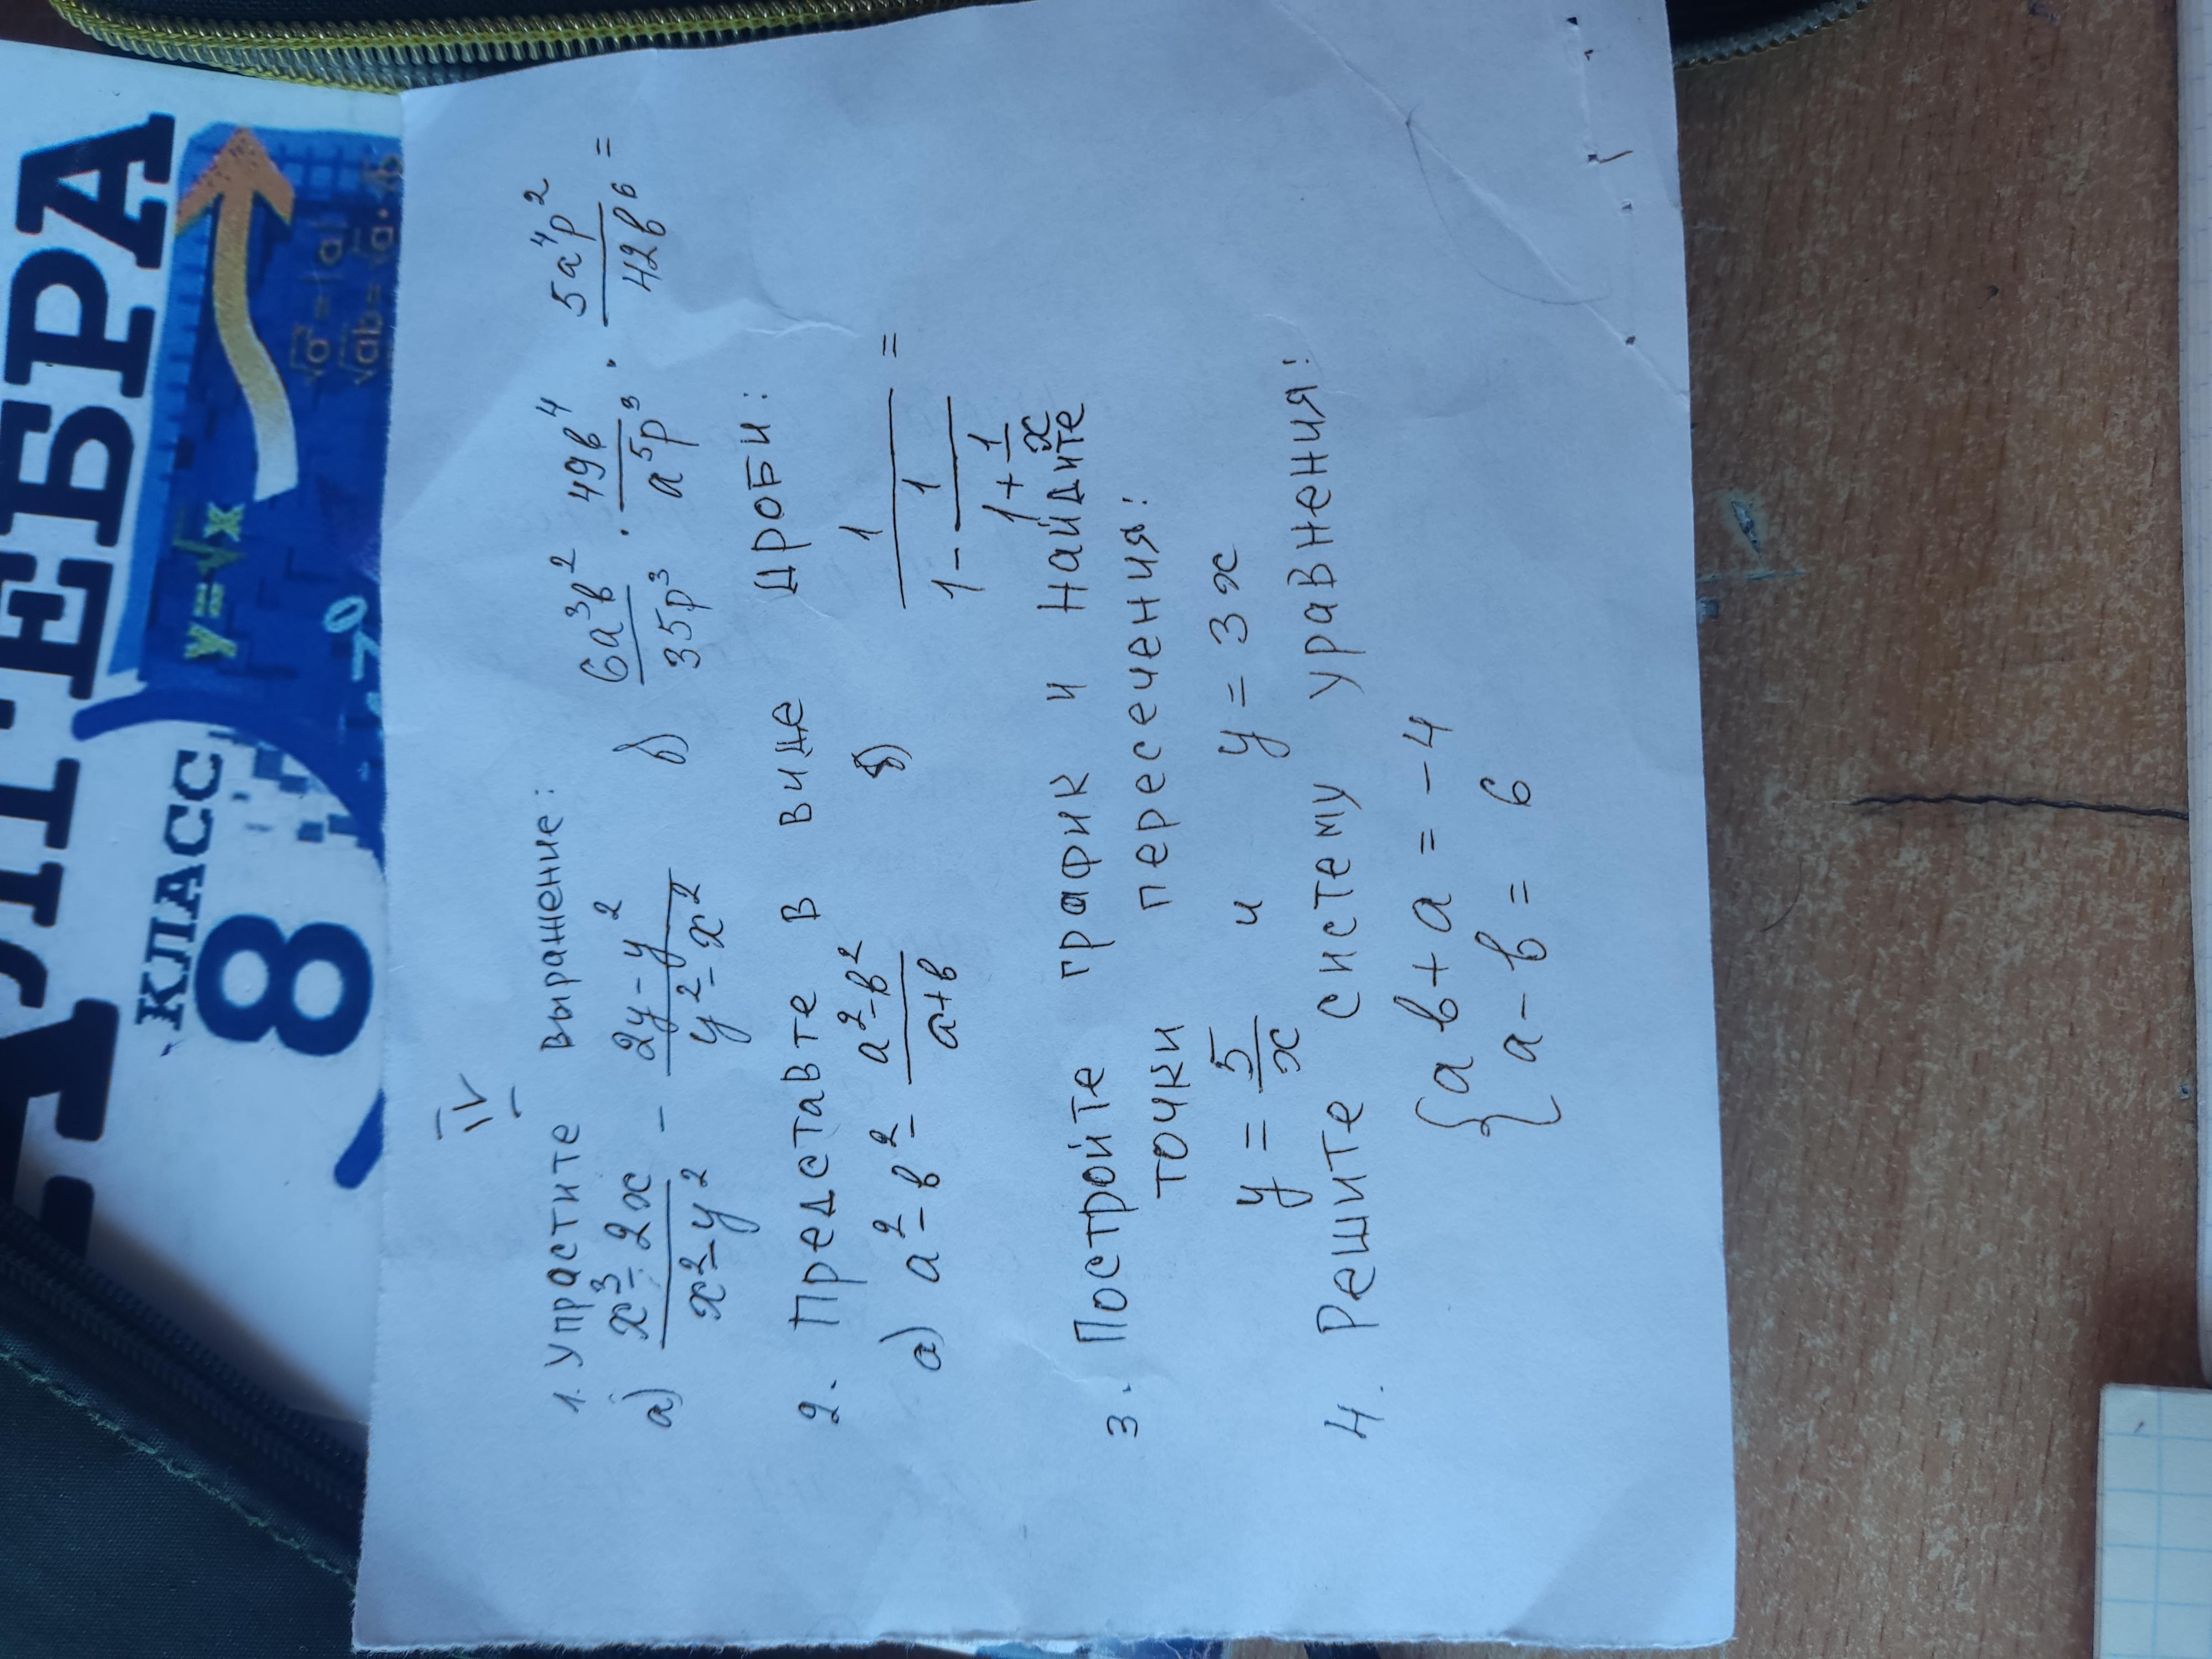 АЛГЕБРА
КЛАСС
8
y=√x
√a² = |a|
√ab = √a·√b
IV
1. Упрастите выражение:
а) (x³ - 2x)/(x² - y²) - (2y - y²)/(y² - x²) б) 6a³b²/35p³ · 49b⁴/a⁵p³ · 5a⁴p²/42b⁶ =
2. Представте в виде дроби:
а) a² - b² - (a² - b²)/(a+b) б) 1/(1 - 1/(1 + 1/x)) =
3. Постройте график и найдите
точки пересечения:
y = 5/x и y = 3x
4. Решите систему уравнения:
{ab + a = -4
a - b = 6